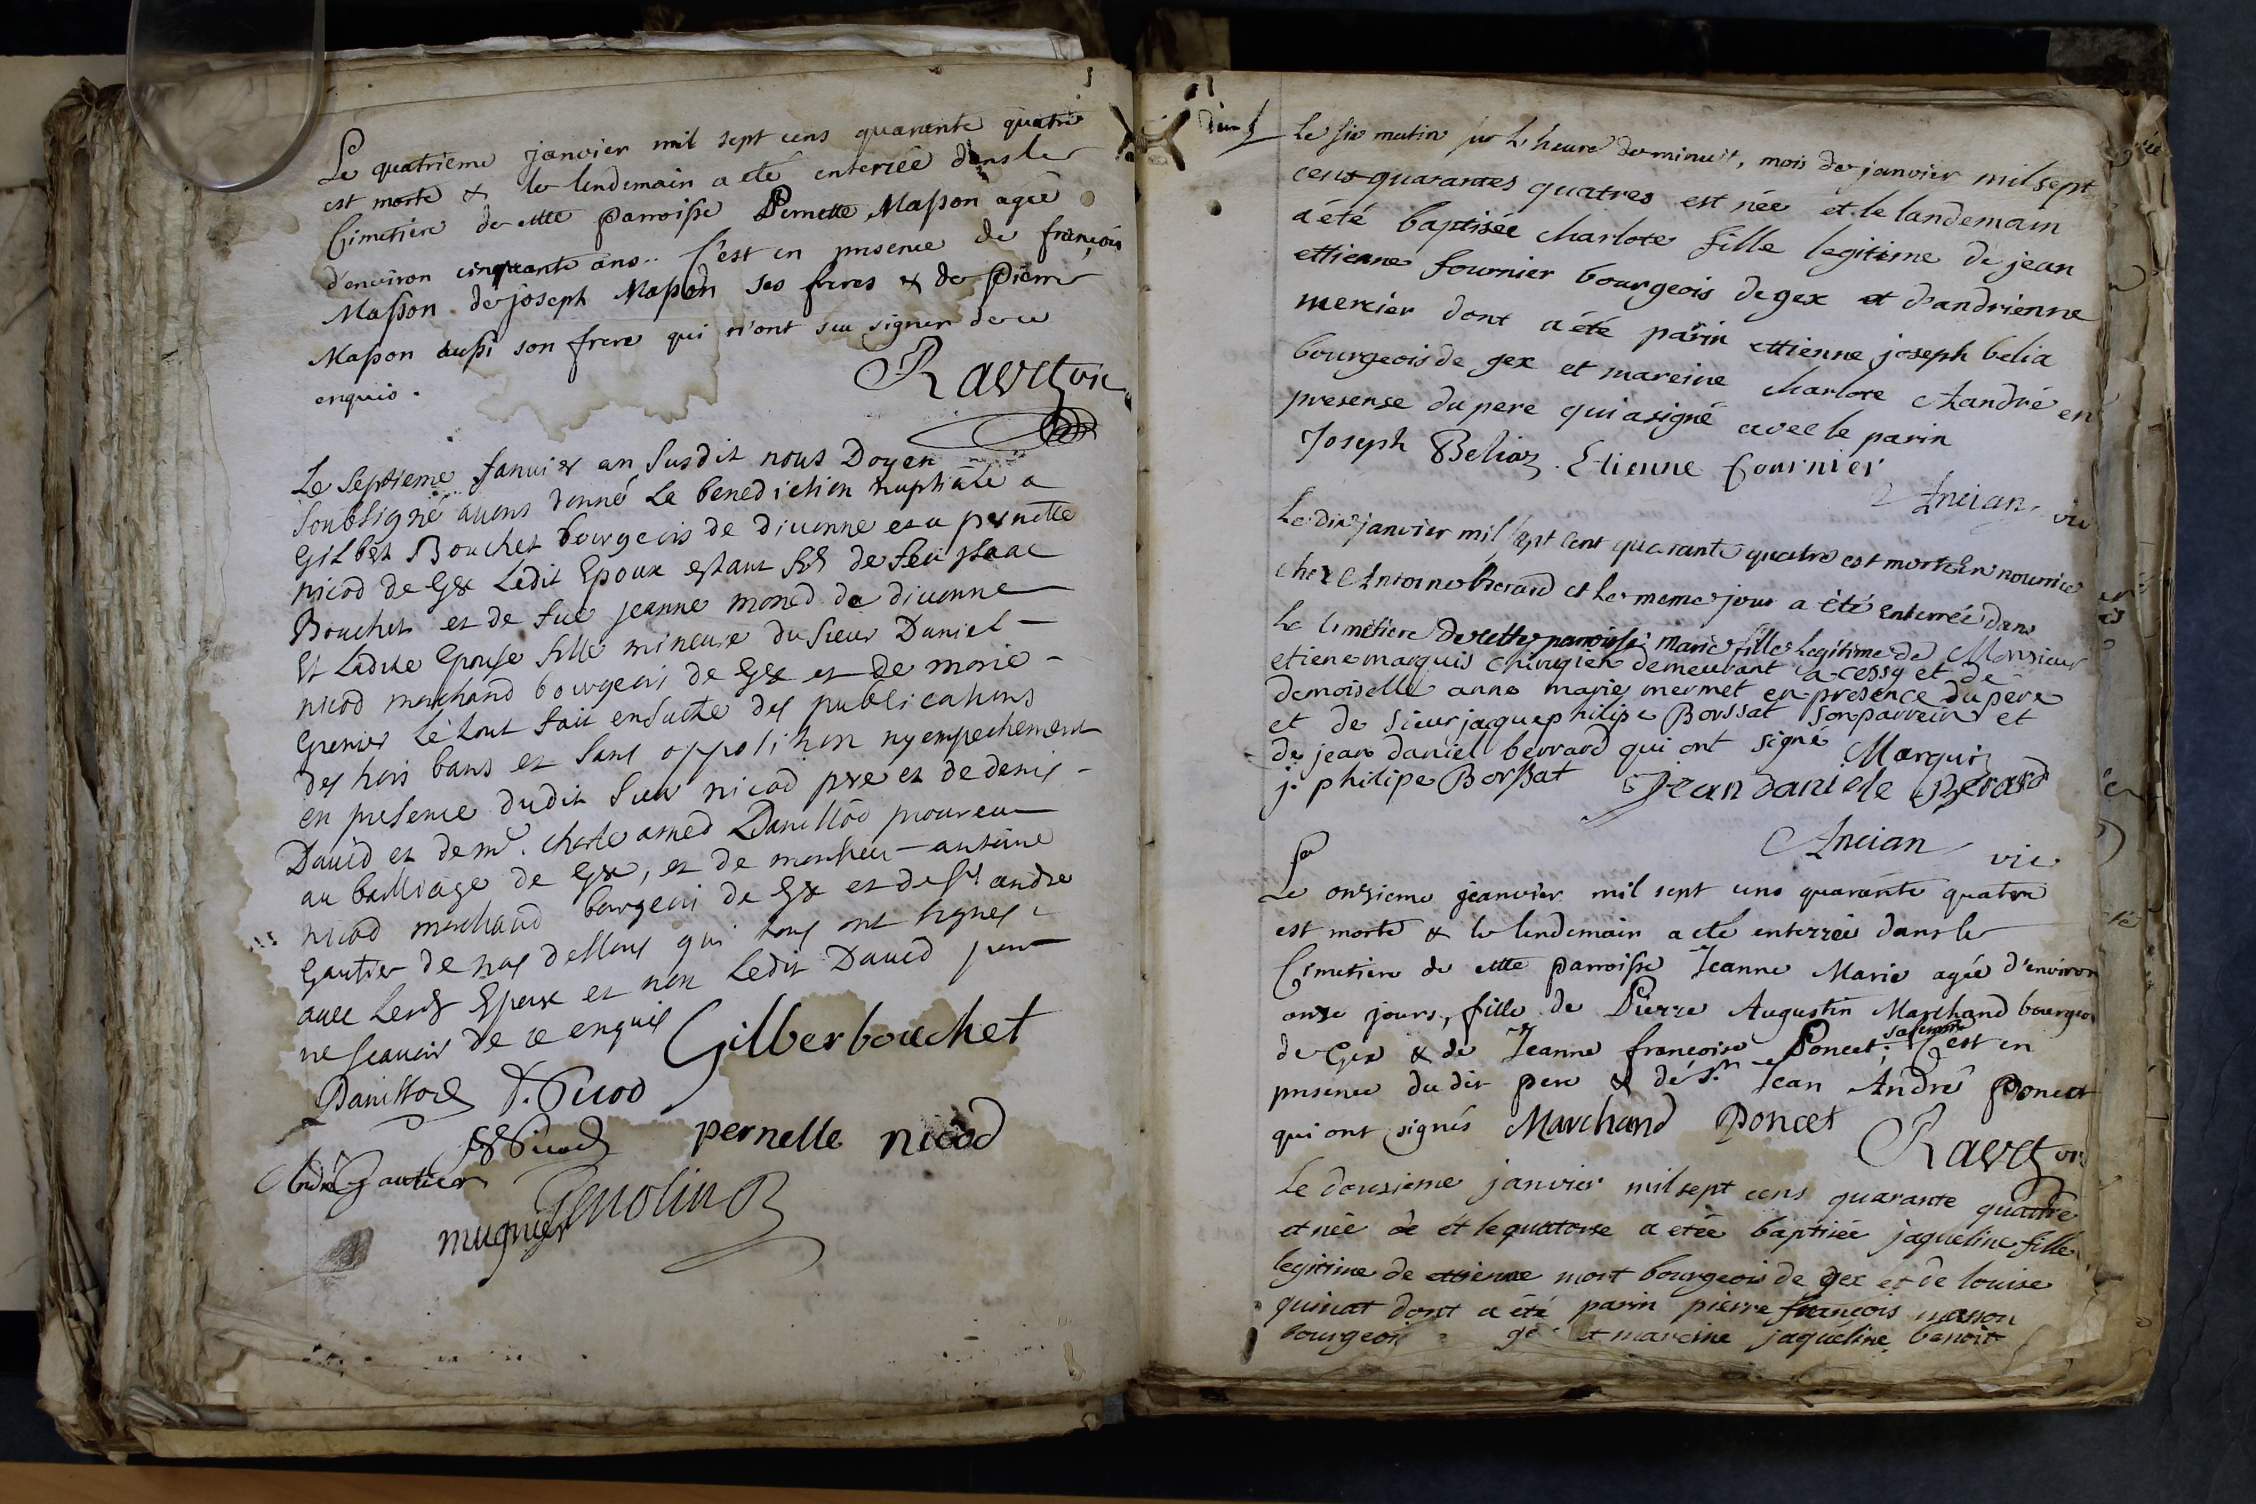 Le quatrieme janvier mil sept cens quarante quatre
est morte & le lendemain a eté enterrée dans le
Cimetiere de cette parroisse Pernette Masson agée
d'environ cinquante ans.. C'est en presence de françois
Masson de joseph Masson ses freres & de Pierre
Masson aussi son frere qui n'ont sçu signer de ce
enquis.
Ravet vic
Le septieme janvier an susdit nous Doyen
soubsigné avons donné le benediction nuptiale a
Gilbert Bouchet bourgeois de divonne et a pernette
nicod de Gex Ledit Epoux estant fils de feu jsaac
Bouchet et de fue jeanne moned de divonne
Et Ladite Epouse fille mineure du sieur Daniel
nicod marchand bourgeois de Gex et de marie
grenier Le tout fait ensuitte des publications
des trois bans et sans opposition ny empechement
en presence dudit sieur nicod pere et de denis
David et de mr. charle amed Danthod procureur
au balliage de Gex, et de monsieur antoine
nicod marchand bourgeois de Gex et de sr andre
gautier de nos dessous qui tous ont signes
avec lesd Epoux et non Ledit David pour
ne scavoir de ce enquis
Gilber bouchet
D. Nicod
pernelle nicod
André Gautier
mugnier
Le six matin sur l'heure de minuit, mois de janvier mil sept
cens quarantes quatres est née et le landemain
a été baptisée charlote fille legitime de jean
ettienne fournier bourgeois de gex et d'andrienne
mercier dont a été parin ettienne joseph belia
bourgeois de gex et mareine charlote Andre en
presense du pere qui a signé avec le parin
Joseph Beliaz. Etienne fournier
Ancian vic
Le dix janvier mil sept cent quarante quatre est morte en nourrice
chez Antoine berard et le meme jour a été enterrée dans
le cimetiere de cette paroisse marie fille legitime de Monsieur
etiene marquis chirurgien demeurant a cessy et de
demoiselle anne marie mermet en presence du père
et de sieur jaque philipe Borssat son parrein et
de jean daniel berrard qui ont signé Marquis
j. philipe Borssat Jean daniele Berard
Ancian vic
Le onzieme jeanvier mil sept cens quarante quatre
est morte & le lendemain a eté enterrée dans le
Cimetiere de cette parroisse Jeanne Marie agée d'environ
onze jours, fille de Pierre Augustin Marchand bourgeois
de Gex & de Jeanne françoise Poncet; sa femme C'est en
presence dudit pere & de sr. Jean André Poncet
qui ont signés Marchand Poncet
Ravet vic
Le dousieme janvier mil sept cens quarante quattre
et née et le quatorse a etée baptisée jaqueline fille
legitime de ettienne mort bourgeois de gex et de louise
quinat dont a été parin pierre françois masson
bourgeois ge et mareine jaqueline benoit